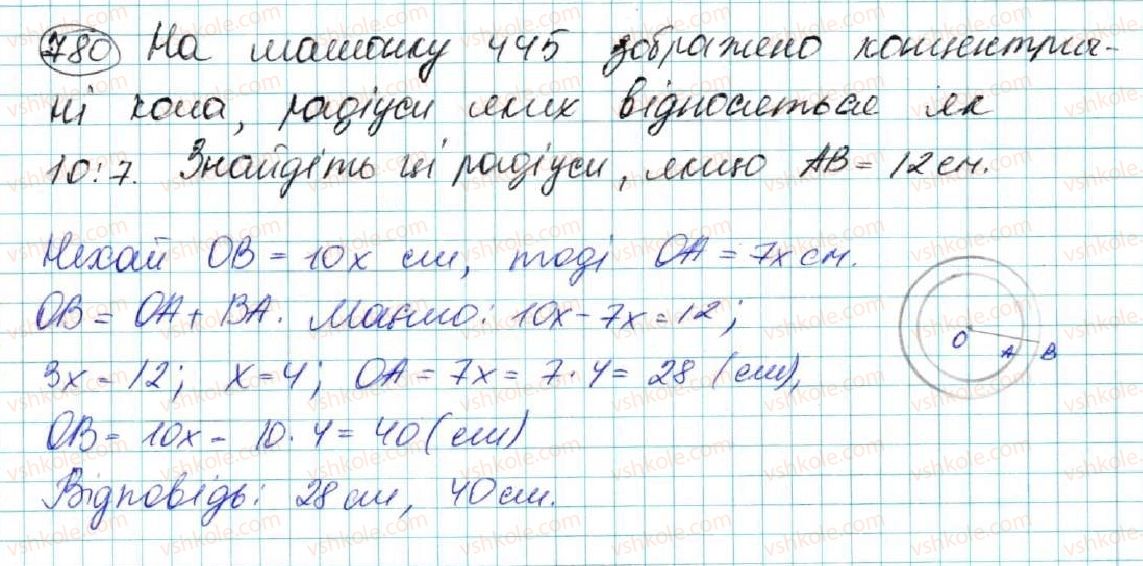 780 На малюнку 445 зображено концентрич-
ні кола, радіуси яких відносяться як
10:7. Знайдіть ці радіуси, якщо AB = 12 см.
Нехай OB = 10x см, тоді OA = 7x см.
OB = OA + BA. Маємо: 10x - 7x = 12;
3x = 12; x = 4; OA = 7x = 7·4 = 28 (см),
OB = 10x - 10·4 = 40 (см)
Відповідь: 28 см, 40 см.
O A B
vshkole.com